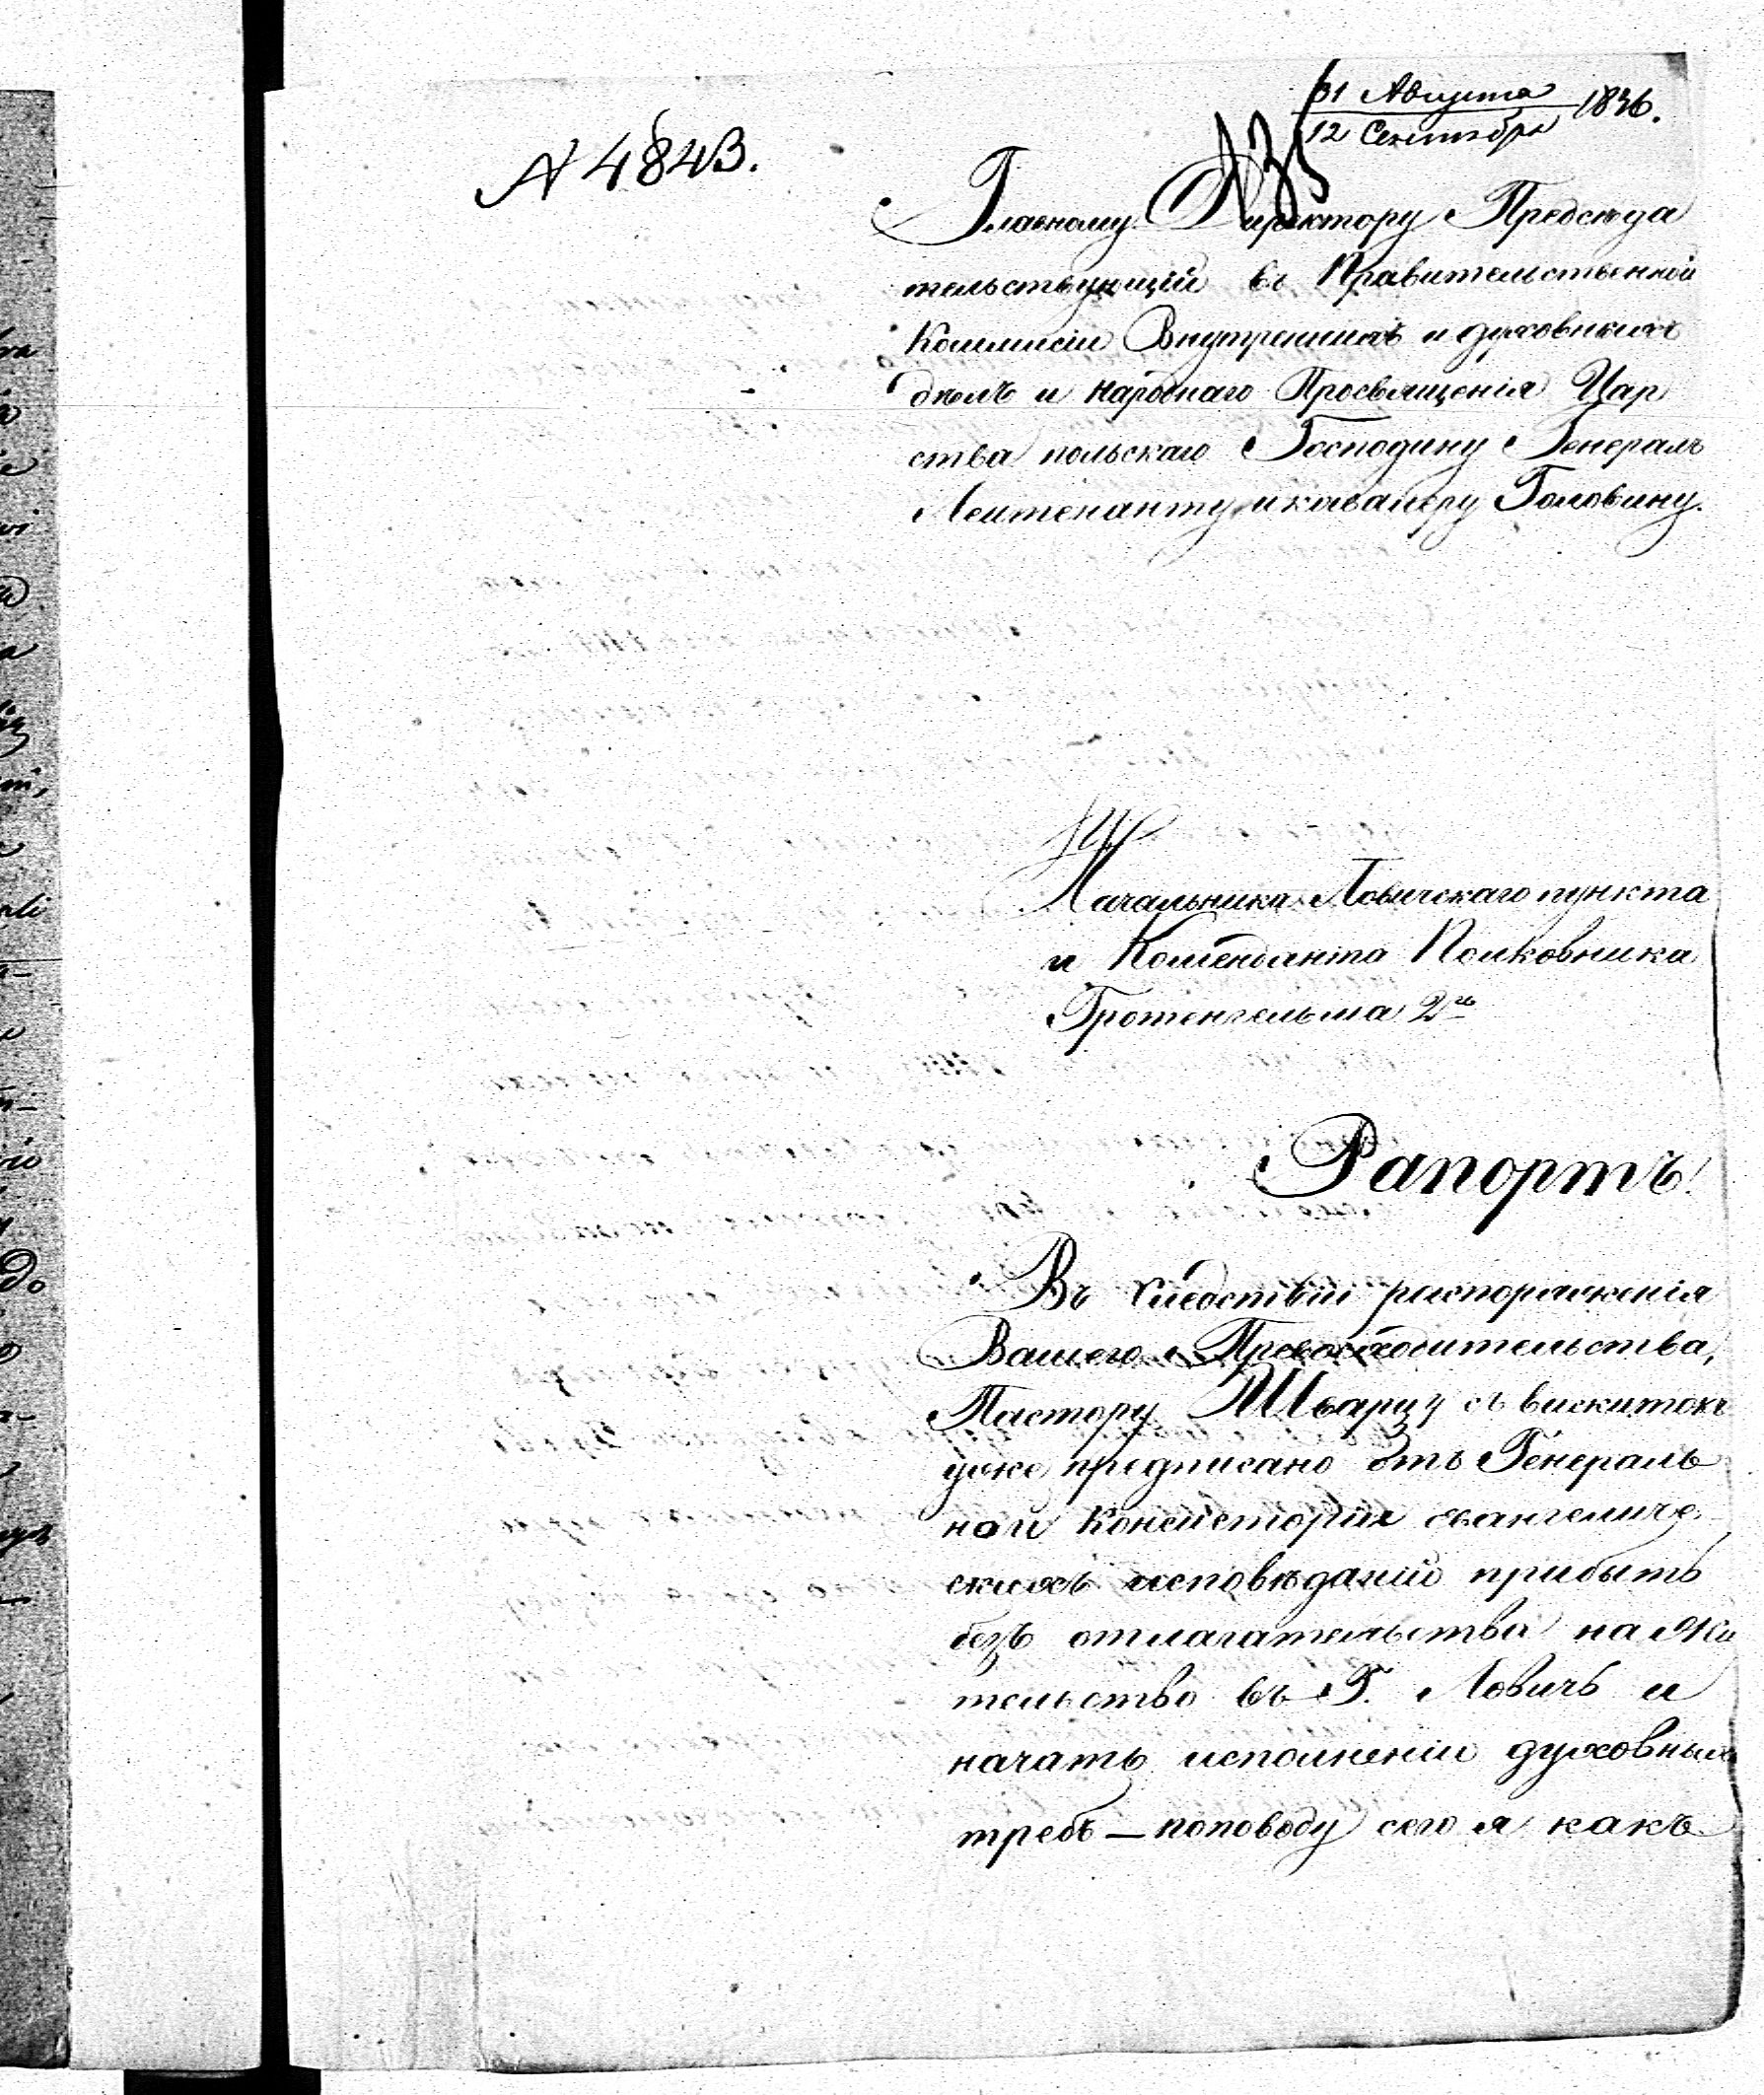 31 Августа
12 Сентября 1836.
№ 4843.
Главному Директору Председа
тельствующій въ Правительственной
Коммисіи Внутреннихъ и духовныхъ
дѣлъ и народнаго Просвященія Цар
ства польскаго Господину Генералъ
Лейтенанту и кавалеру Головину.
Начальника Ловичскаго пункта
и Коменданта Полковника
Гротенгельма 2го
Рапортъ.
Въ следствіи распоряженія
Вашего Превосходительства,
Пастору Шварцу съ вискитокъ
уже предписано отъ Генераль
ной Консисторіи евангеличе
скихъ исповѣданій прибыть
безъ отлагательства на жи
тельство въ Г. Ловичь и
начать исполненіи духовныхъ
требъ — поповоду сего я какъ